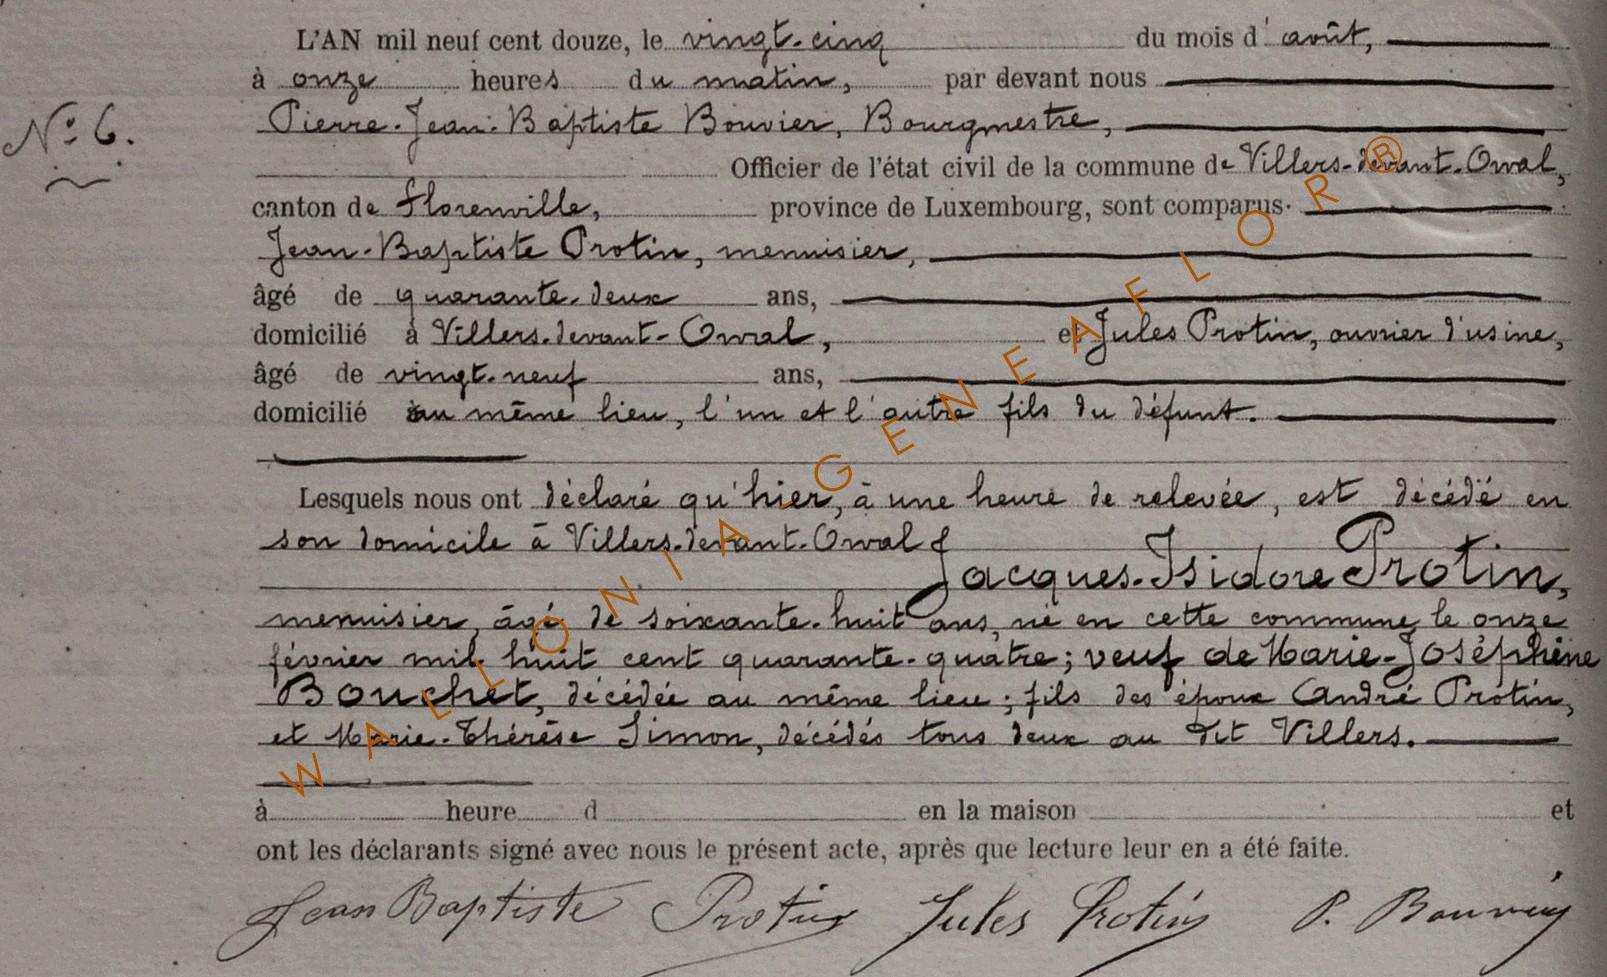 L'AN mil neuf cent douze, le vingt-cinq du mois d'août,
à onze heures du matin, par devant nous
Nº 6.
Pierre-Jean-Baptiste Bouvier, Bourgmestre,
Officier de l'état civil de la commune de Villers-devant-Orval,
canton de Florenville, province de Luxembourg, sont comparus
Jean-Baptiste Protin, menuisier,
âgé de quarante-deux ans,
domicilié à Villers-devant-Orval, et Jules Protin, ouvrier d'usine,
âgé de vingt-neuf ans,
domicilié au même lieu, l'un et l'autre fils du défunt.
Lesquels nous ont déclaré qu'hier, à une heure de relevée, est décédé en
son domicile à Villers-devant-Orval
Jacques-Isidore Protin,
menuisier, âgé de soixante-huit ans, né en cette commune, le onze
février mil huit cent quarante-quatre; veuf de Marie-Joséphine
Bouchet, décédée au même lieu; fils des époux André Protin,
et Marie-Thérèse Simon, décédés tous deux au dit Villers.
à heure d en la maison et
ont les déclarants signé avec nous le présent acte, après que lecture leur en a été faite.
Jean Baptiste Protin Jules Protin P. Bouvier
WALLONIA-GENEAFLOR®